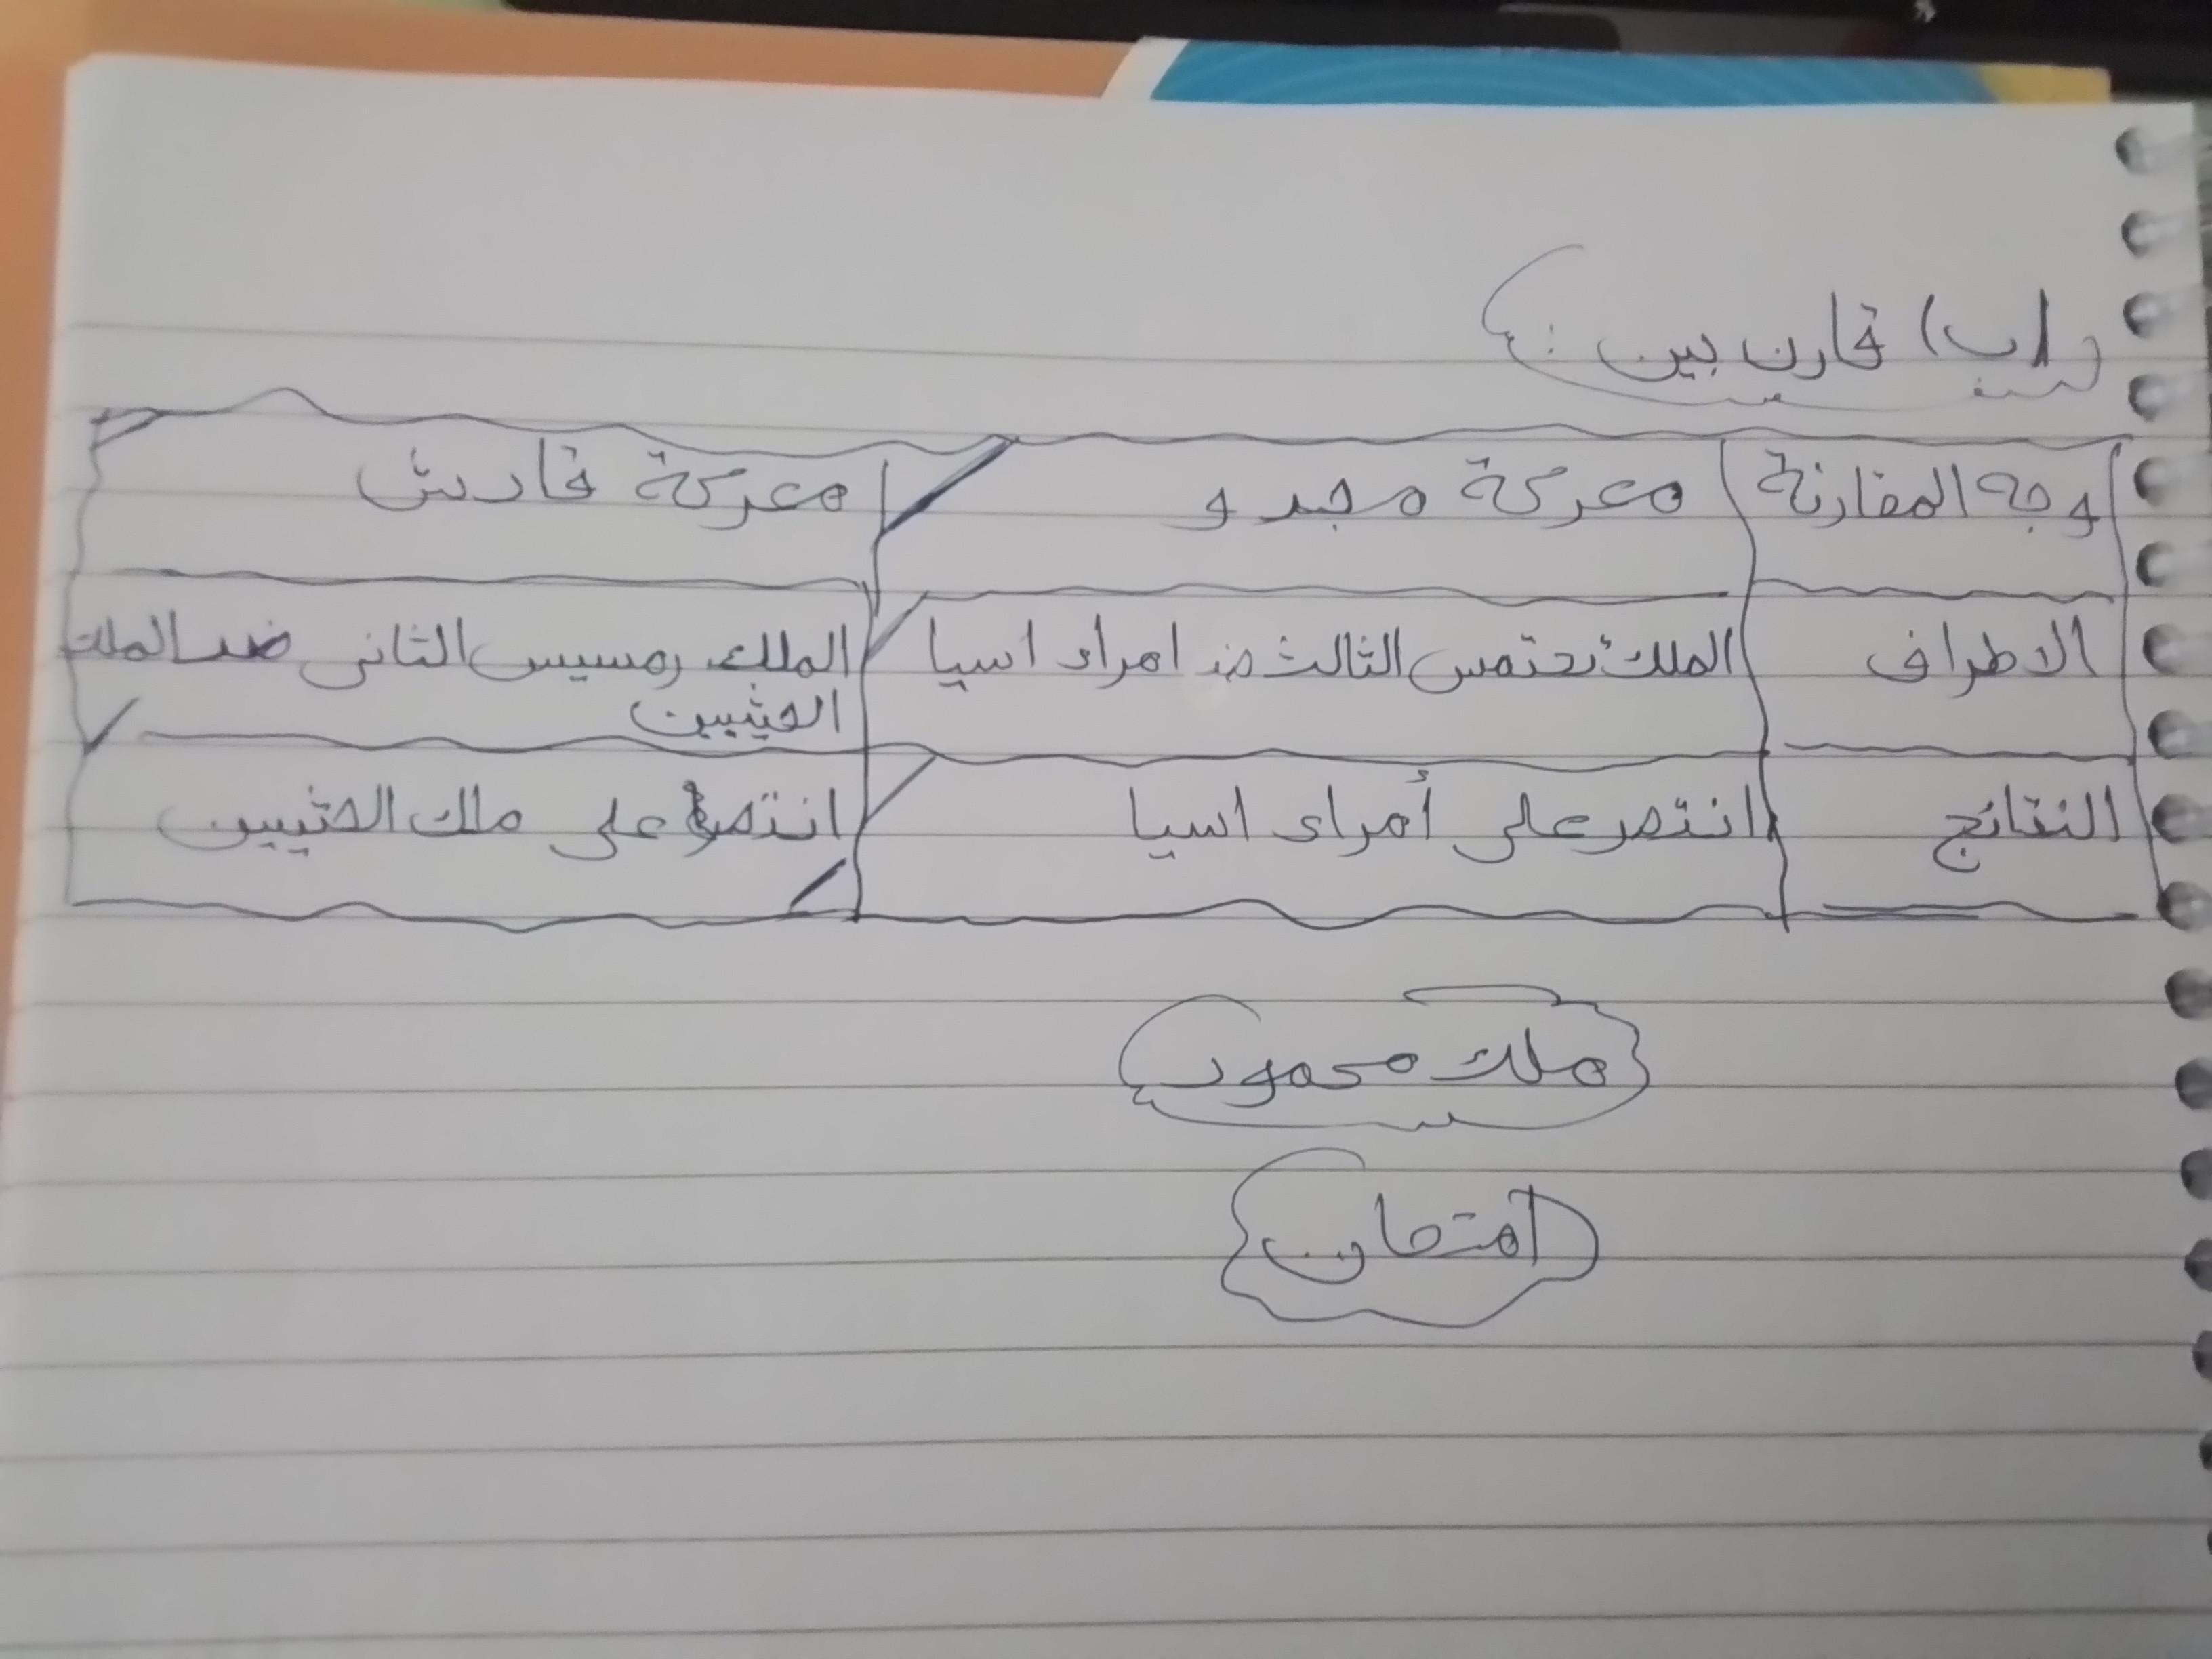 (ب) قارن بين :
وجه المقارنة معركة مجدو معركة قادش
الاطراف الملك تحتمس الثالث ضد امراء اسيا الملك رمسيس الثانى ضد الملك
الحثيين
النتائج انتصر على أمراء اسيا انتصر على ملك الحثيين
ملك محمود
امتحان